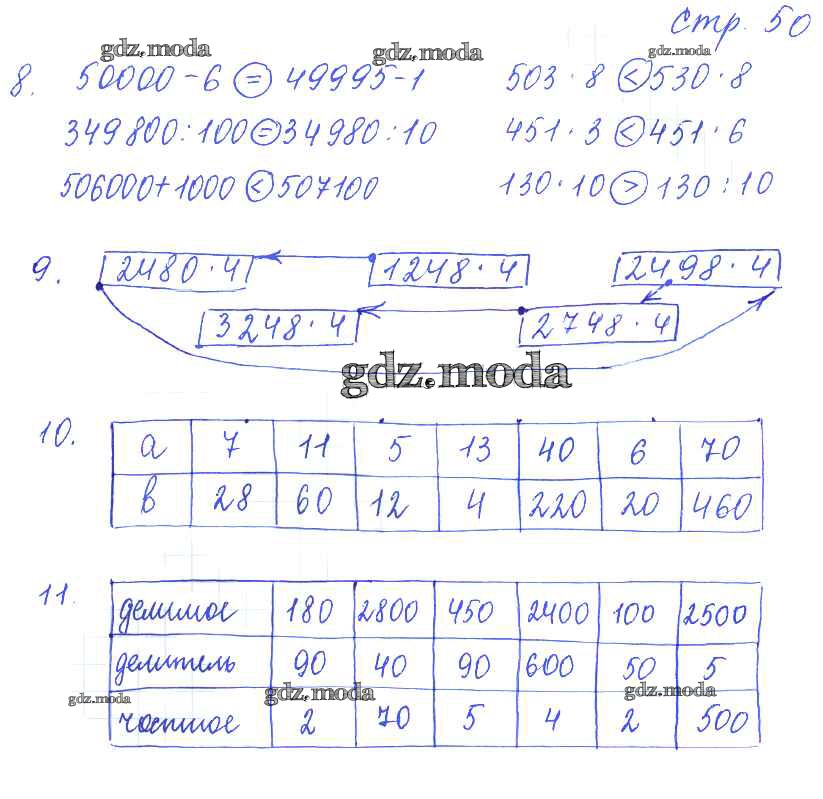 Стр. 50
gdz.moda gdz.moda gdz.moda
8. 50000 - 6 = 49995 - 1 503 · 8 < 530 · 8
349800 : 100 = 34980 : 10 451 · 3 < 451 · 6
506000 + 1000 < 507100 130 · 10 > 130 : 10
9. 2480 · 4 1248 · 4 2498 · 4
3248 · 4 2748 · 4
gdz.moda
10. а 7 11 5 13 40 6 70
в 28 60 12 4 220 20 460
11. делимое 180 2800 450 2400 100 2500
делитель 90 40 90 600 50 5
gdz.moda gdz.moda gdz.moda
частное 2 70 5 4 2 500